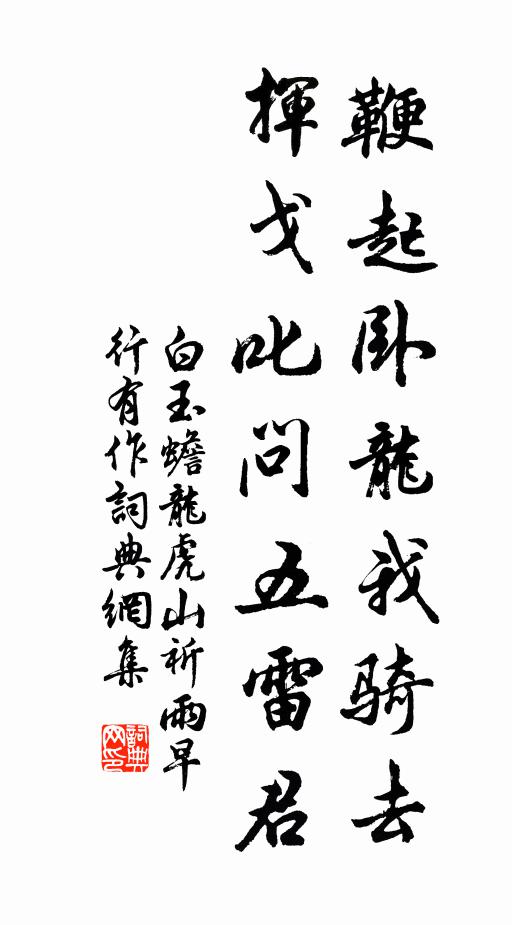 鞭起卧龍我騎去
揮戈叱問五雷君
白玉蟾龍虎山祈雨早
行有作詞典網集
詞典
网印